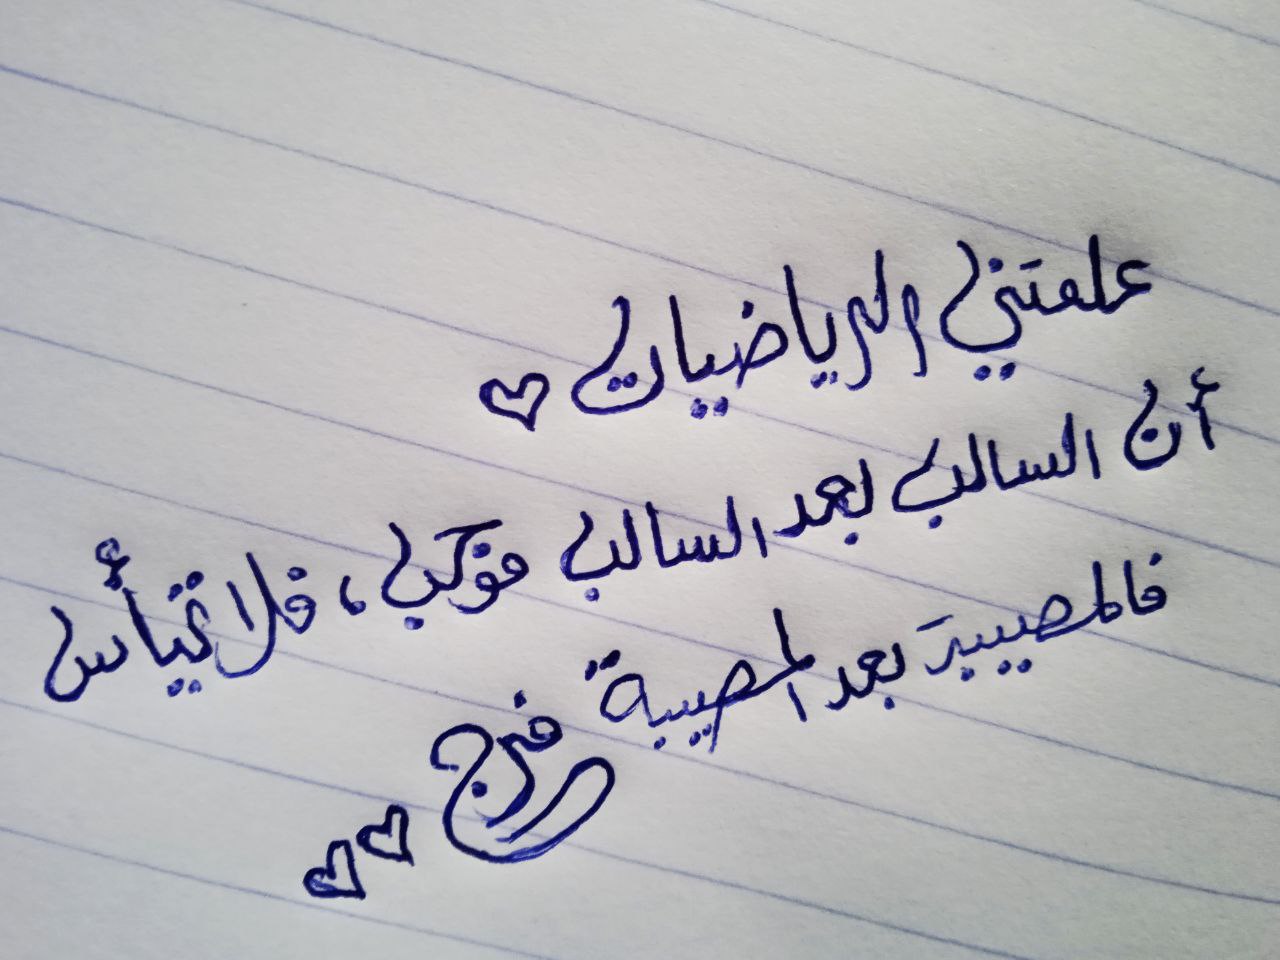 علمتني الرياضيات
أن السالب بعد السالب موجب، فلا تيأس
فالمصيبة بعد المصيبة فرج